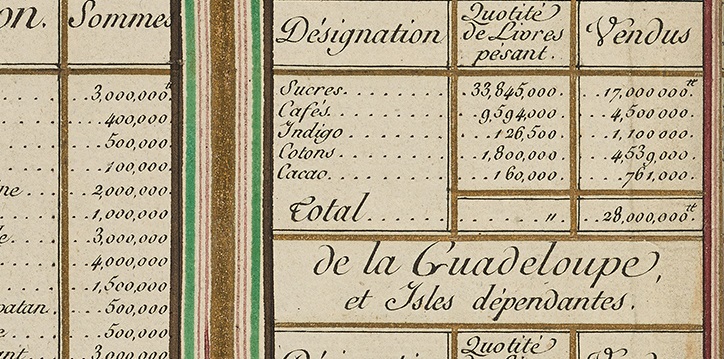 on. Sommes
. . . . 3,000,000.ᵗᵗ
. . . . 400,000
. . . . 500,000
. . . . 100,000
ne . . . 2,000,000
. . . . 1,000,000
. . . 3,000,000
. . . . 4,000,000
. . . . 1,500,000
patan. . 500,000
. . . 500,000
ant. . . 3,000,000
Désignation Quotité de Livres pésant. Vendus
Sucres. . . . . . . . 33,845,000. . . 17,000,000.ᵗᵗ
Cafés. . . . . . . . . 9,594,000. . . 4,500,000.
Indigo . . . . . . . . 126,500. . . 1,100,000.
Cotons . . . . . . . 1,800,000. . . 4,539,000.
Cacao. . . . . . . . 160,000. . . 761,000.
Total. . . . . . . . " . . 28,000,000.ᵗᵗ
de la Guadeloupe,
et Isles dépendantes.
Quotité